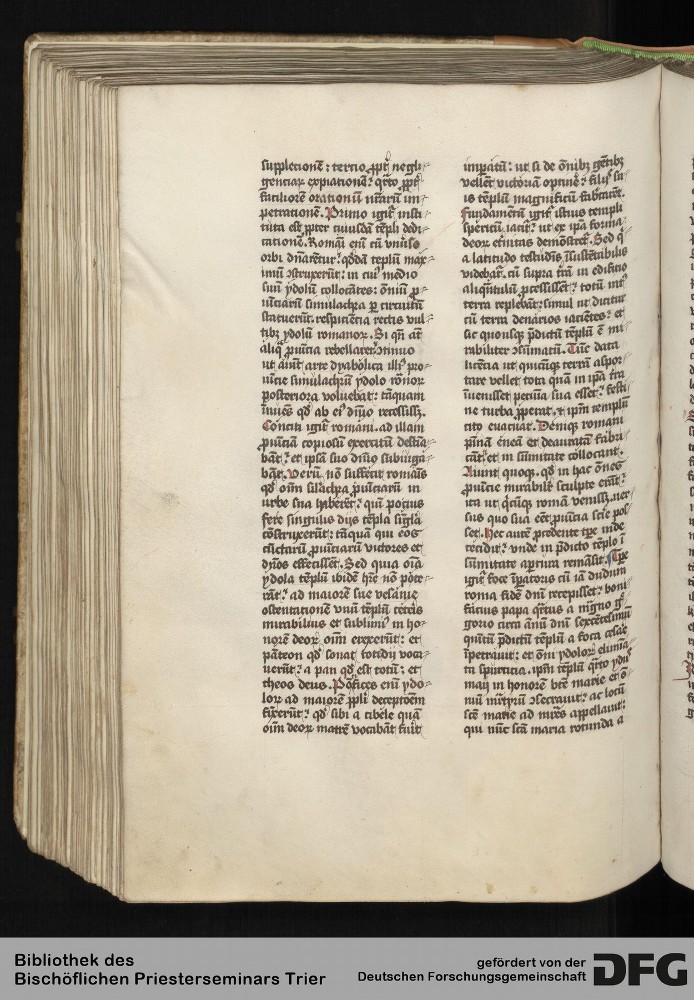 suppletionē : tertio ꝓpť negli
gentiaꝝ expiationē : qrto ꝓpť
faciliorē orationū nr̄arū im
petrationē. Primo igiť insti
tuta est ꝓpter cuiusdā tēpli dedi
cationē. Romāi eni cū vniūso
orbi dn̄arētur : qd̄dā teplū max
imū ɔstruxerūt : in cui⁹ medio
suū ydolū collocātes : oīniū ꝓ
uīciarū simulachra ꝑ circuitū
statuerūt. respiciētia rectis vul
tibꝫ ydolū romanoꝝ. Si qn̄ aūt
aliq̄ ꝓuīcia rebellaret ɔtinuo
ut aiūt arte dyabolica illi⁹ pro
uīcie simulachrū ydolo rōnoꝝ
posteriora voluebat : tāquam
īnuēs qd̄ ab ei⁹ dn̄io recessiss̄.
Conciti igiť romāni. ad illam
ꝓuīciā copiosū exercitū destīa
bāt : et ipsā suo dn̄io subiuga
bāt. Verū nō suffecit romāis
qd̄ oīm silac̄hra ꝓuīciarū in
urbe sua hr̄erēt : quī potius
fere singulis diis tēpla sīgl̄a
cōstruxerūt : tāquā qui eos
cūctarū ꝓuīciarū victores et
dn̄os effecissēt. Sed quia oīa
ydola tēplū ibidē hr̄e nō pote
rāt : ad maiorē sue vesanie
ostentationē vnū tēplū ceteis
mirabilius et sublimi⁹ in ho
norē deoꝝ oīm erexerūt : et
pāteon qd̄ sonat totidū voca
uerūt : a pan qd̄ est totū : et
theos deus. Pōtifices enī ydo
loꝝ ad maiorē ꝓpli deceptoēm
fīxerūt : qd̄ sibi a cibele quā
oīm deoꝝ matrē vocabāt fuīt
impatū : ut si de ōnibꝫ gētibꝫ
vellēt victoriā optinē : filiis su
is tēplū magnificū fab̄carēt.
Fundamētū igiť istius templi
spericū iaciť : ut ex ipā forma
deoꝝ etnitas demōstret̄. Sed q̄
a latitudo testudis īsustētabilis
videbat̄. cū supra trā in edificio
aliqn̄tulū ꝓcessissēt : totū int⁹
terra replebāt : simul ut dicitur
cū terra denarios iaciētes : et
sic quousqꝫ p̄dictū tēplū ē mi
rabiliter ɔsūmatū. Tūc data
licētia ut quicūqꝫ terrā aspor
tare vellet tota quā in ipā tra
īuenisset pecūia sua esset : festi
ne turba ꝓperat̄. et ip̄m templū
cito euacuat. Demiqꝫ romani
pinā enēā et deauratā fabri
cāt et in sūmitate collocant.
Aiunt quoqꝫ. qd̄ in hac oēs
ꝓuīcie mirabilr̄ sculpte erāt :
ita ut q̄cūqꝫ romā veniss̄. ver
sus quo sua eēt ꝓuīcia scīe pos
set. Hec autē p̄cedente tꝑe inde
cecidit : vnde in p̄dicto tēplo ī
sūmitate aꝑtura remāsit. Tꝑe
igiť foce īꝑatoris cū iā dudum
roma fidē dn̄i recepisset : boni
facius papa q̄rtus a magno g⁹
gorio circa ānū dn̄i sexcētesimū
quītū p̄dictū tēplū a foca cesae
īpetrauit : et oīm ydoloꝝ elimia
ta spurcicia. ipm̄ tēplū q̄rto ydus
maij in honorē btē marie et ō
niū mr̄tyrū ɔsecrauit : ac locū
scē marie ad mr̄es appellauit :
qui nūc scā maria rotunda a
Bibliothek des
Bischöflichen Priesterseminars Trier
gefördert von der
Deutschen Forschungsgemeinschaft
DFG